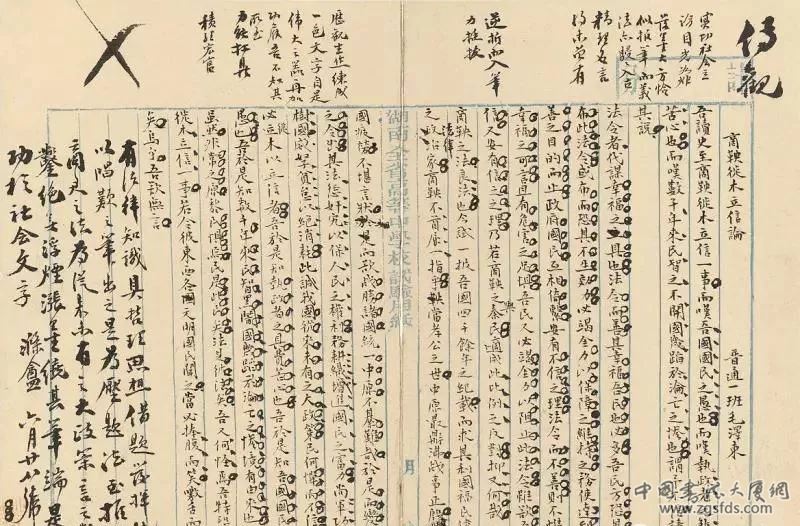 傳觀
實切社會立
論目光如炬
落墨大方恰
似報筆而義
法亦駸駸入古
精理名言
得未曾有
逆折而入筆
力挺拔
歷觀生作練成
一色文字自是
偉大之器再加
功候吾不知其
所至
力能扛鼎
積理宏富
商鞅徙木立信論
普通一班毛澤東
吾讀史至商鞅徙木立信一事而嘆吾國國民之愚也而嘆執政
苦心也而嘆數千年來民智之不開國幾蹈於淪亡之慘也謂予
其說
法令者代謀幸福之具也法令而善其幸福吾民也必多吾民方恐其
布此法令或布而恐其不生效力必竭全力以保障之維持之務使達
善之目的而止政府國民互相倚繫安有不信之理法令而不善則不惟
幸福之可言且有危害之足懼吾民又必竭全力以阻止此法令雖欲吾
信又安有信之之理乃若商鞅之與秦民適成此比例之反對抑又何哉
商鞅之法良法也今試一披吾國四千餘年之紀載而求其利國福民偉
之政治家商鞅不首屈一指乎鞅當孝公之世中原鼎沸戰事正殷
國疲勞不堪言狀於是而欲戰勝諸國統一中原不綦難哉於是而變
之令出其法懲奸宄以保人民之權利務耕織以增進國民之富力尚軍功
樹國威孥貧怠以絕消耗此誠我國從來未有之大政策民何憚而不信
必徙木以立信者吾於是知執政者之具費苦心也吾於是知吾國國民
愚也吾於是知數千年來民智黑闇國幾蹈於淪亡之慘境有由來也
雖然非常之原黎民懼焉民是此民矣法是彼法矣吾又何怪焉吾特恐
徙木立信一事若令彼東西各國文明國民聞之當必捧腹而笑噭舌而
矣烏乎吾欲無言
有法律知識具哲理思想借題發揮
以唱歎之筆出之是為壓題法至推
商君之法為從來未有之大政策言之
鑿絕無浮煙漲墨繞其筆端是
功於社會文字
滌盦 六月廿八號
湖南全省高等中學校試驗用紙
月
中国书法大厦网
www.zgsfds.com